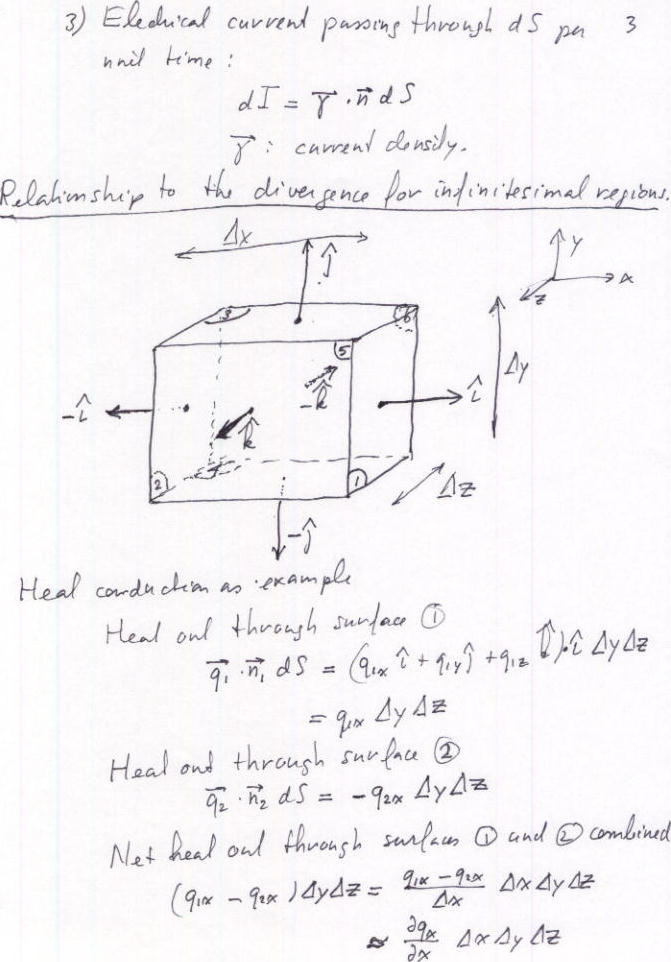 3) Electrical current passing through dS per 3
unit time:
dI = γ⃗ · n⃗ dS
γ⃗ : current density.
Relationship to the divergence for infinitesimal regions.
Δx
ĵ
y
x
z
3
6
5
Δy
-î
î
-k̂
k̂
2
1
Δz
-ĵ
Heat conduction as example
Heat out through surface ①
q⃗₁ · n⃗₁ dS = (q₁ₓ î + q₁y ĵ + q₁z k̂) · î Δy Δz
= q₁ₓ Δy Δz
Heat out through surface ②
q⃗₂ · n⃗₂ dS = -q₂ₓ Δy Δz
Net heat out through surfaces ① and ② combined
(q₁ₓ - q₂ₓ) Δy Δz = (q₁ₓ - q₂ₓ)/Δx Δx Δy Δz
≈ ∂qₓ/∂x Δx Δy Δz